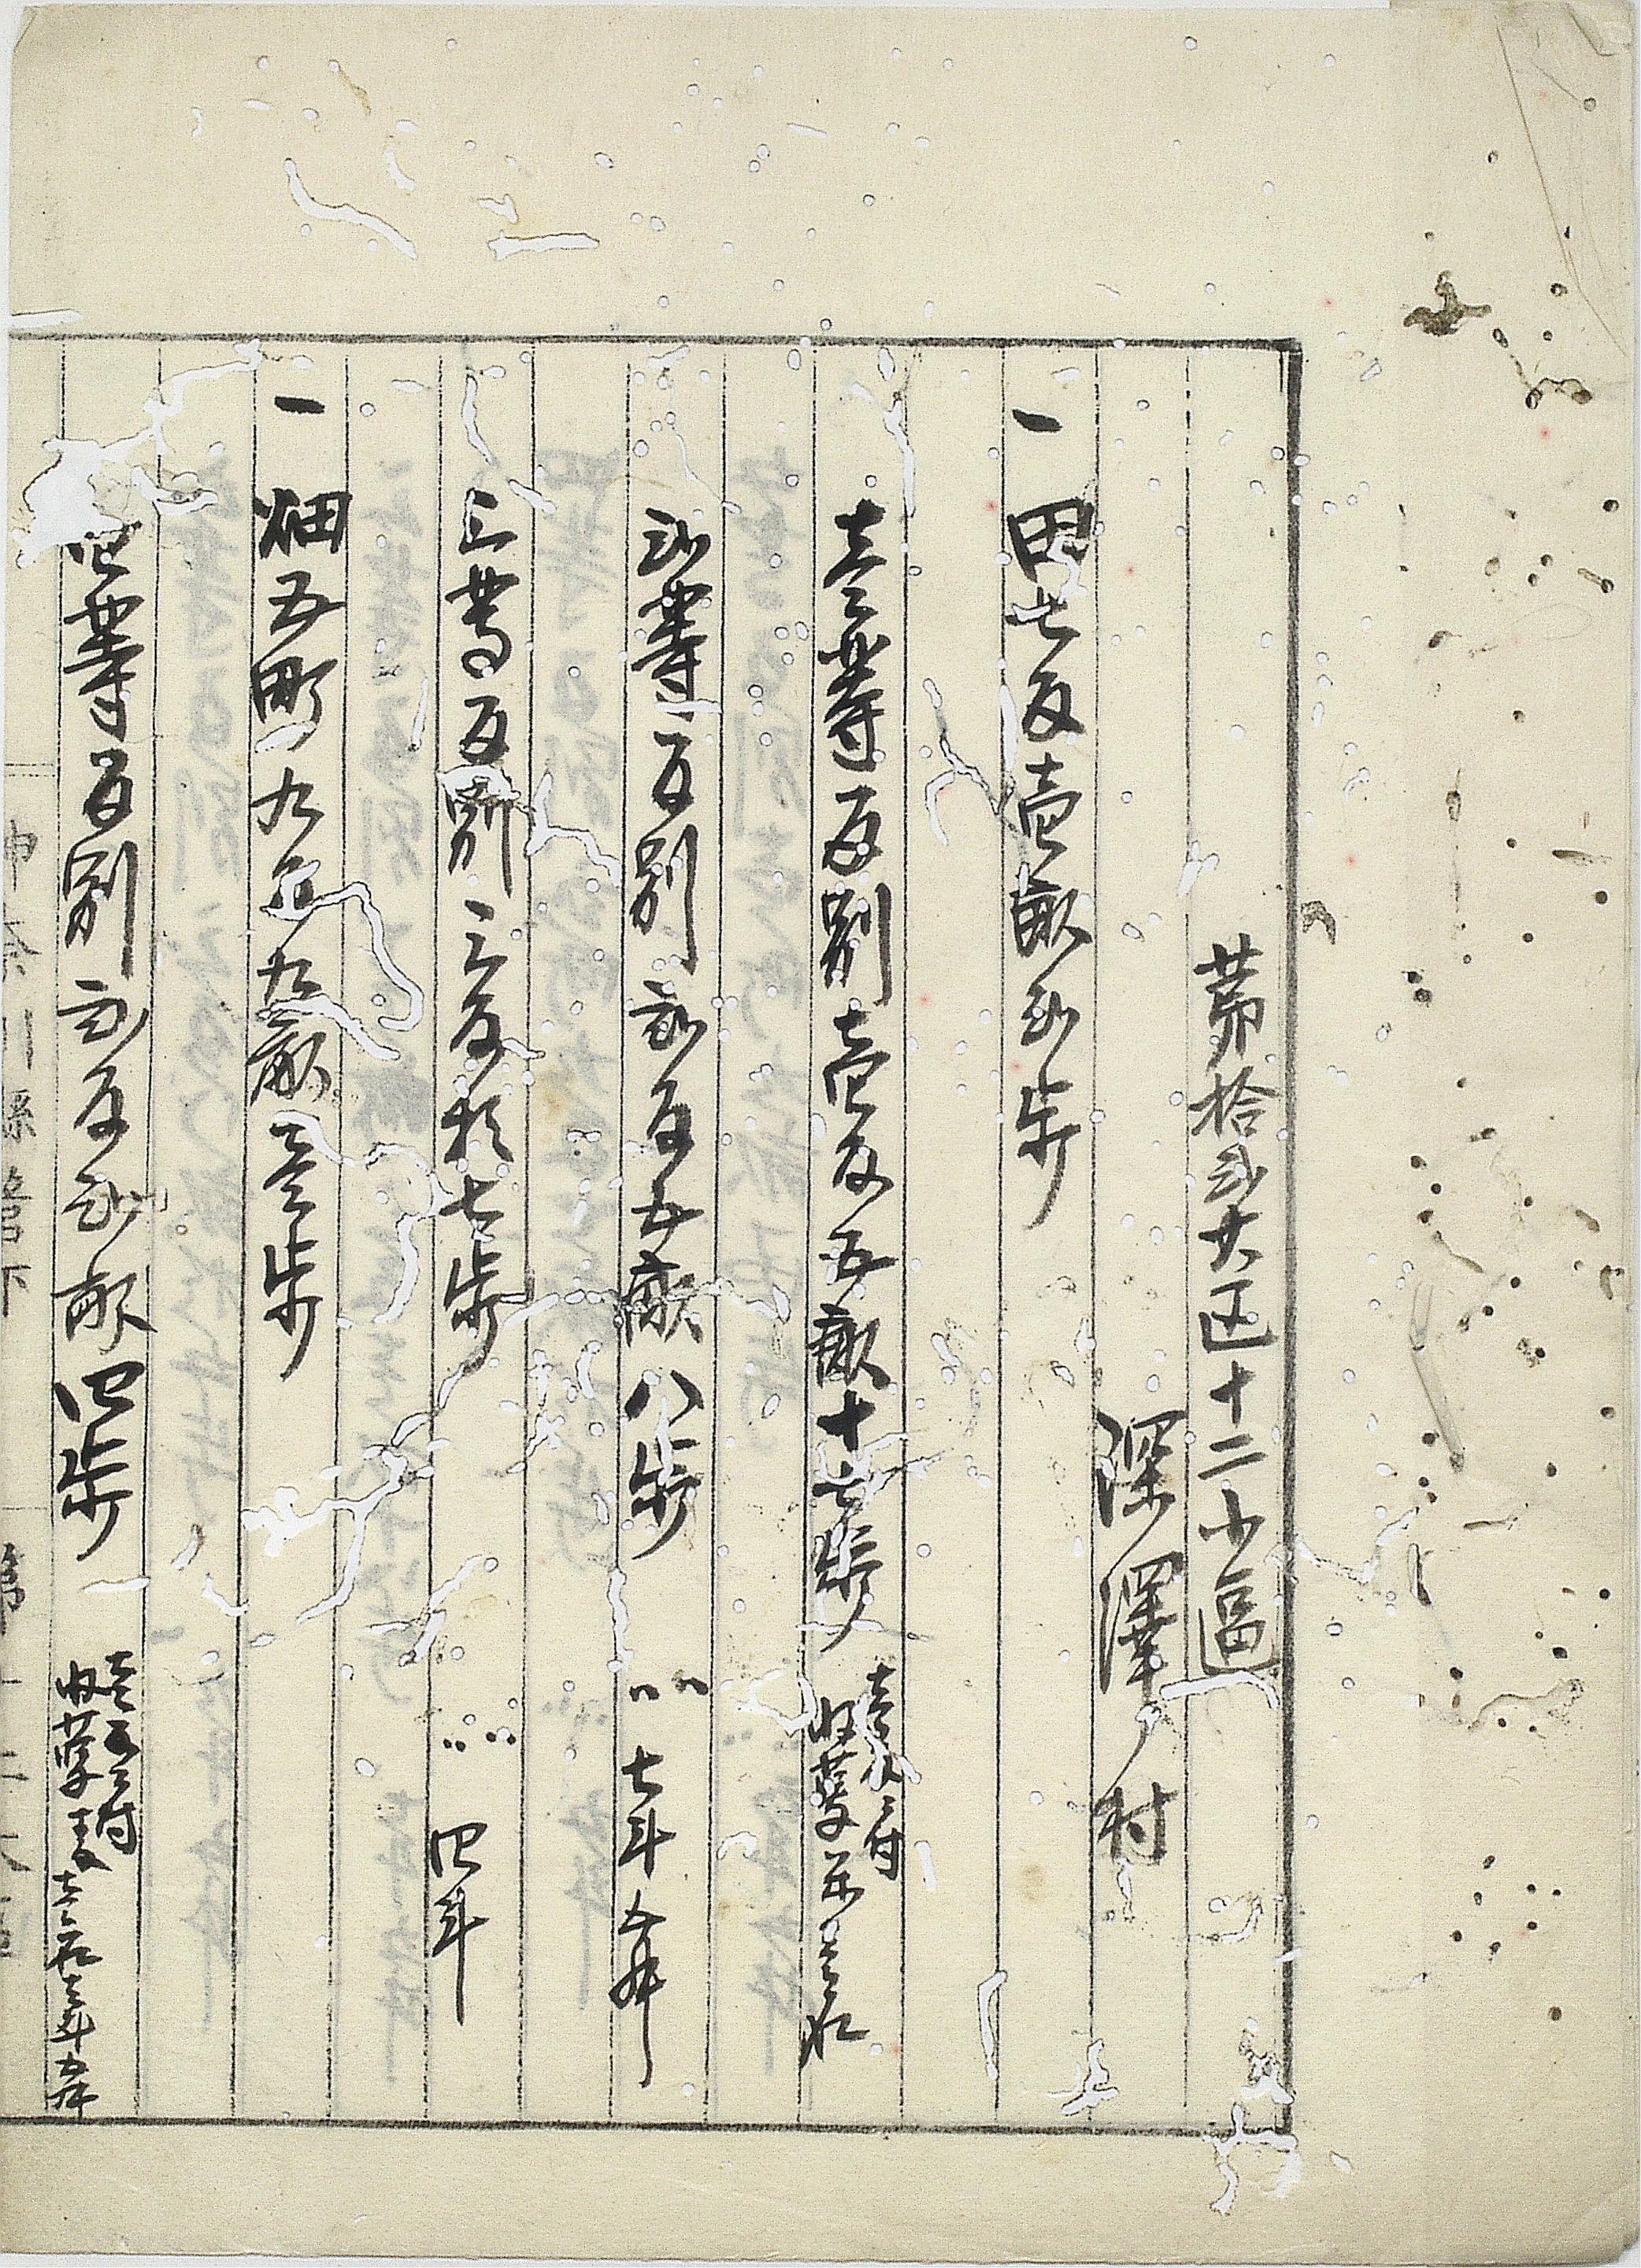 第拾弐大区十二小區
深澤村
一 田七反壱畝弐歩
壱等反別壱反五畝十七歩 壱反ニ付 収穫米壱石
弐等反別弐反五畝八歩 〃 七斗五升
三等反別三反拾七歩 〃 四斗
一 畑五町九反九畝壱歩
壱等反別弐反弐畝四歩 壱反ニ付 収穫麦壱石壱斗五升
神奈川縣管下 第十二大區